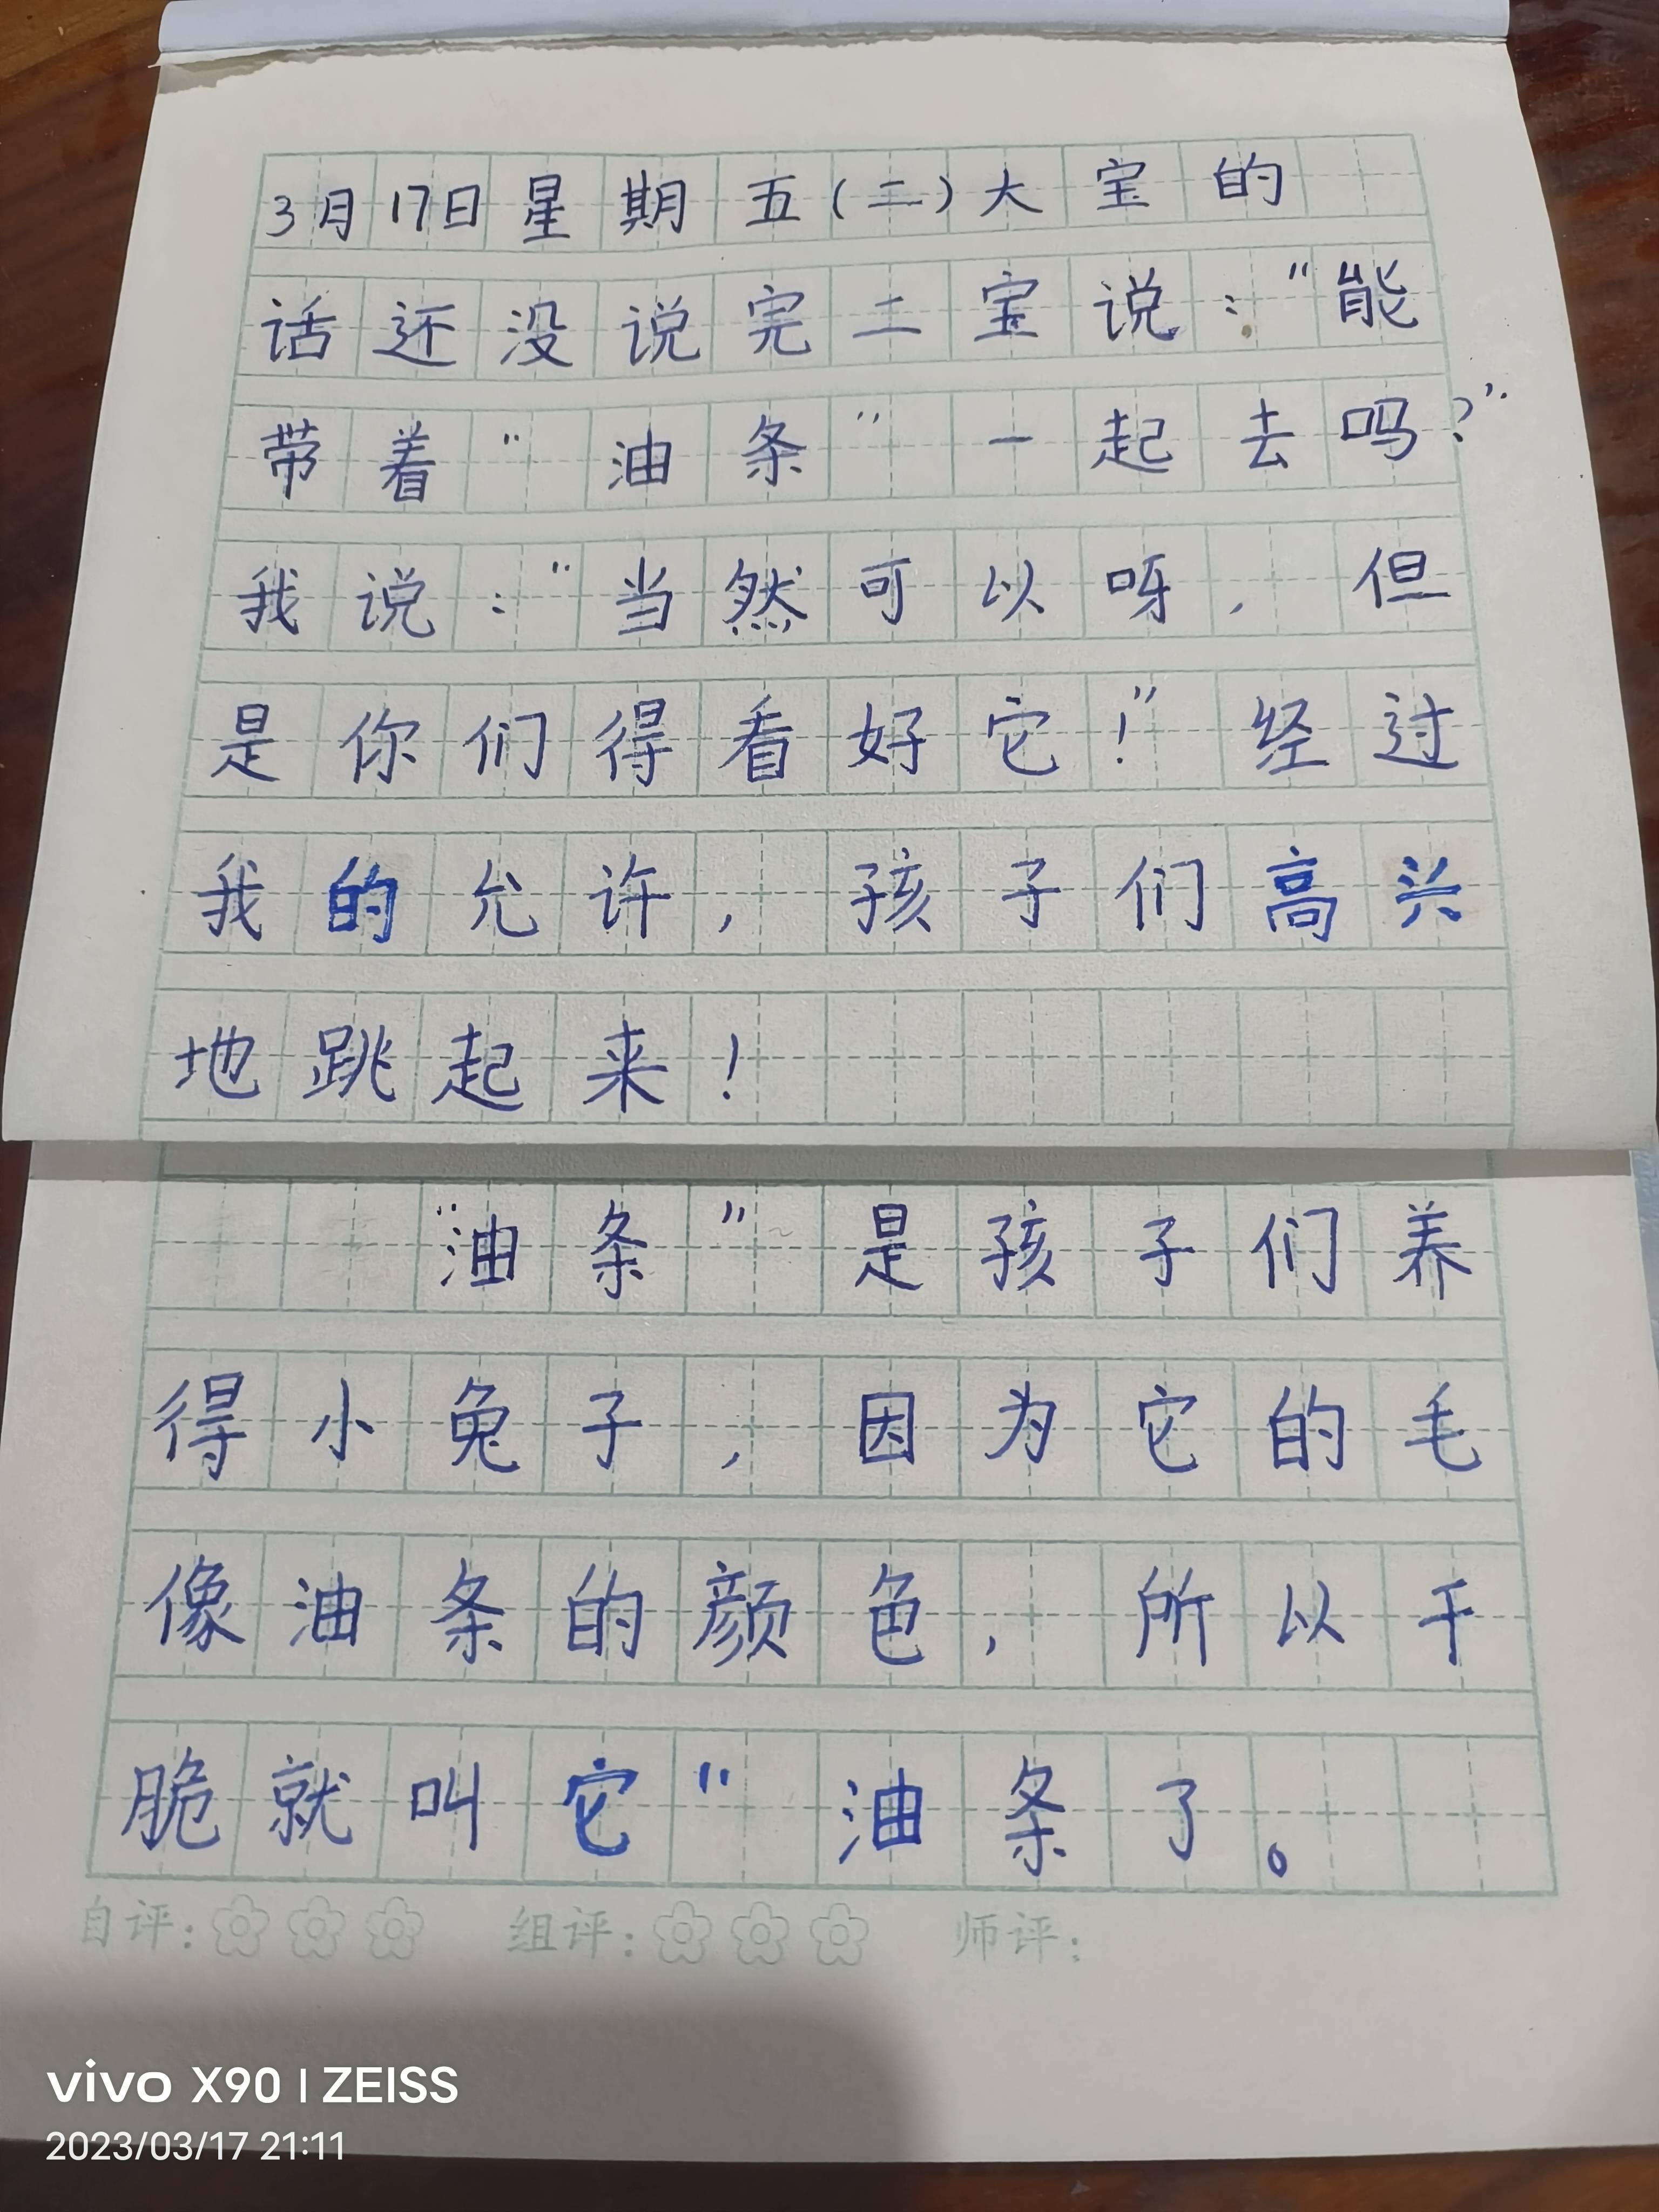 3月17日星期五(二)大宝的
话还没说完二宝说:“能
带着“油条”一起去吗?”
我说:“当然可以呀,但
是你们得看好它!”经过
我的允许,孩子们高兴
地跳起来!
“油条”是孩子们养
得小兔子,因为它的毛
像油条的颜色,所以干
脆就叫它"油条了。
自评: 组评: 师评:
vivo X90 | ZEISS
2023/03/17 21:11